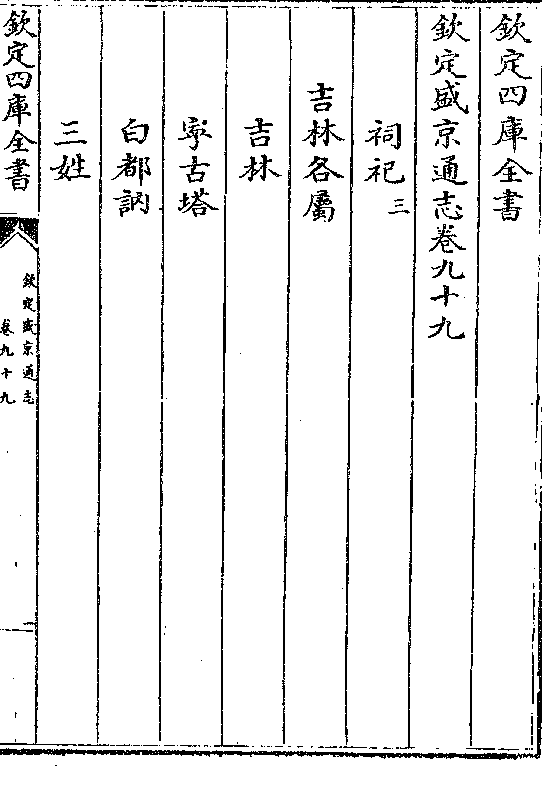 欽定四庫全書
欽定盛京通志卷九十九
祠祀三
吉林各屬
吉林
寧古塔
白都訥
三姓
欽定四庫全書
欽定盛京通志
卷九十九
一